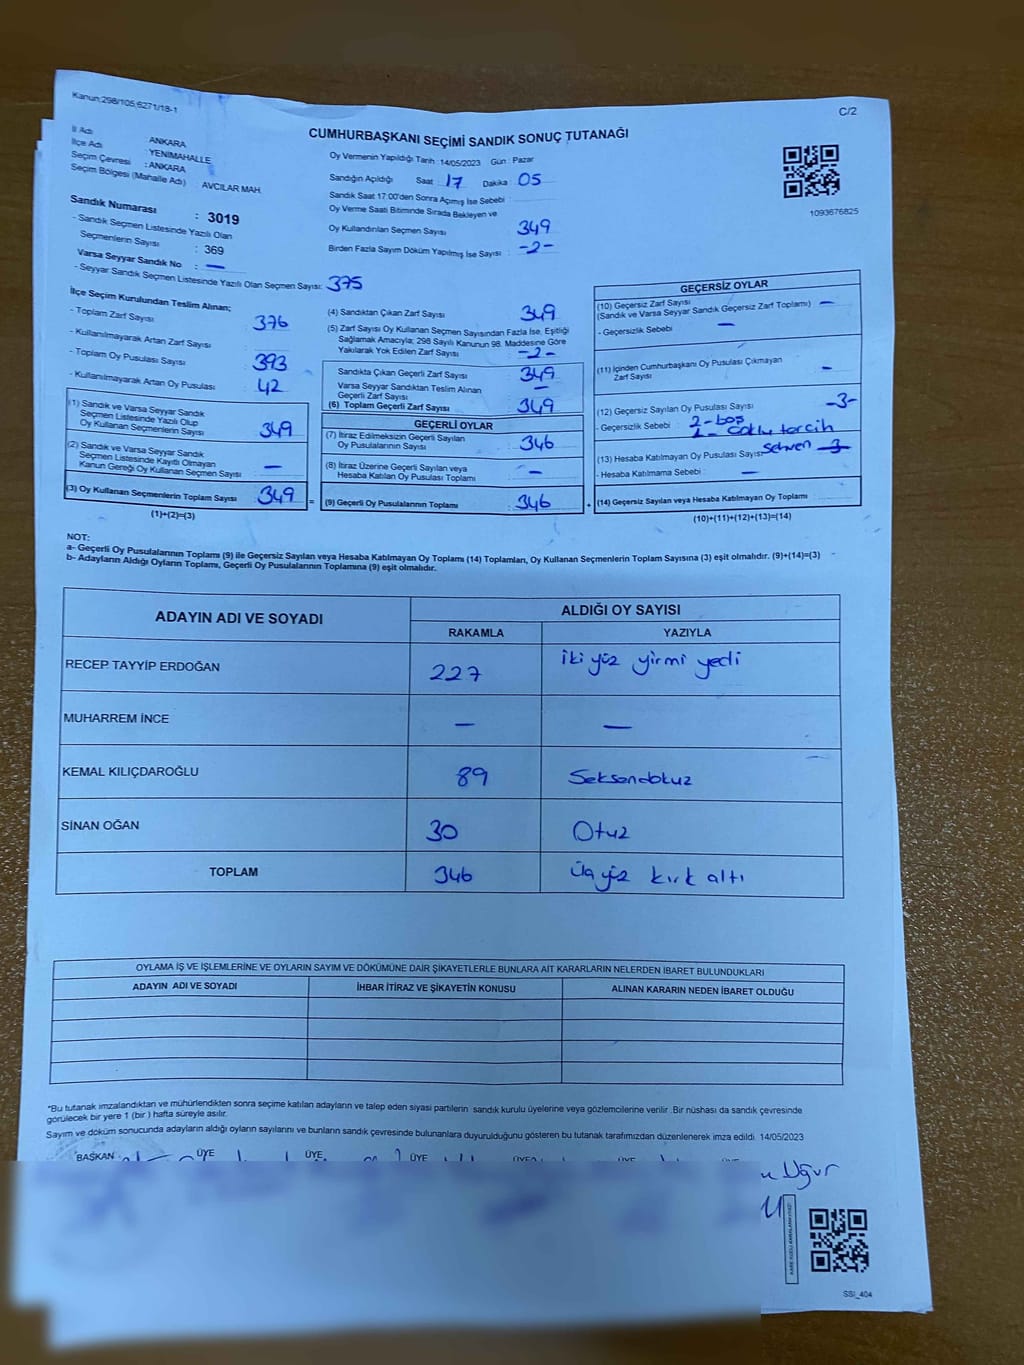 Kanun;298/105,6271/18-1
C/2
CUMHURBAŞKANI SEÇİMİ SANDIK SONUÇ TUTANAĞI
İl Adı : ANKARA
İlçe Adı : YENİMAHALLE
Seçim Çevresi : ANKARA
Seçim Bölgesi (Mahalle Adı) : AVCILAR MAH.
Oy Vermenin Yapıldığı Tarih : 14/05/2023 Gün : Pazar
Sandığın Açıldığı Saat : 17 Dakika : 05
Sandık Saat 17:00'den Sonra Açımış İse Sebebi :
Oy Verme Saati Bitiminde Sırada Bekleyen ve
Oy Kullandırılan Seçmen Sayısı : 349
Birden Fazla Sayım Döküm Yapılmış İse Sayısı : -2-
1093676825
Sandık Numarası : 3019
- Sandık Seçmen Listesinde Yazılı Olan
Seçmenlerin Sayısı : 369
Varsa Seyyar Sandık No : —
- Seyyar Sandık Seçmen Listesinde Yazılı Olan Seçmen Sayısı: 375
İlçe Seçim Kurulundan Teslim Alınan;
- Toplam Zarf Sayısı 376
- Kullanılmayarak Artan Zarf Sayısı :
- Toplam Oy Pusulası Sayısı : 393
- Kullanılmayarak Artan Oy Pusulası : 42
(1) Sandık ve Varsa Seyyar Sandık
Seçmen Listesinde Yazılı Olup
Oy Kullanan Seçmenlerin Sayısı : 349
(2) Sandık ve Varsa Seyyar Sandık
Seçmen Listesinde Kayıtlı Olmayan
Kanun Gereği Oy Kullanan Seçmen Sayısı : —
(3) Oy Kullanan Seçmenlerin Toplam Sayısı : 349 =
(1)+(2)=(3)
(4) Sandıktan Çıkan Zarf Sayısı : 349
(5) Zarf Sayısı Oy Kullanan Seçmen Sayısından Fazla İse, Eşitliği
Sağlamak Amacıyla; 298 Sayılı Kanunun 98. Maddesine Göre
Yakılarak Yok Edilen Zarf Sayısı : -2-
Sandıkta Çıkan Geçerli Zarf Sayısı : 349
Varsa Seyyar Sandıktan Teslim Alınan
Geçerli Zarf Sayısı : —
(6) Toplam Geçerli Zarf Sayısı : 349
GEÇERLİ OYLAR
(7) İtiraz Edilmeksizin Geçerli Sayılan
Oy Pusulalarının Sayısı : 346
(8) İtiraz Üzerine Geçerli Sayılan veya
Hesaba Katılan Oy Pusulaları Toplamı : —
(9) Geçerli Oy Pusulalarının Toplamı : 346 +
GEÇERSİZ OYLAR
(10) Geçersiz Zarf Sayısı : —
(Sandık ve Varsa Seyyar Sandık Geçersiz Zarf Toplamı)
- Geçersizlik Sebebi : —
(11) İçinden Cumhurbaşkanı Oy Pusulası Çıkmayan
Zarf Sayısı : —
(12) Geçersiz Sayılan Oy Pusulası Sayısı : -3-
- Geçersizlik Sebebi : 2-boş
1- Çoklu tercih
(13) Hesaba Katılmayan Oy Pusulası Sayısı: Sehven 3
- Hesaba Katılmama Sebebi : —
(14) Geçersiz Sayılan veya Hesaba Katılmayan Oy Toplamı :
(10)+(11)+(12)+(13)=(14)
NOT:
a- Geçerli Oy Pusulalarının Toplamı (9) ile Geçersiz Sayılan veya Hesaba Katılmayan Oy Toplamı (14) Toplamları, Oy Kullanan Seçmenlerin Toplam Sayısına (3) eşit olmalıdır. (9)+(14)=(3)
b- Adayların Aldığı Oyların Toplamı, Geçerli Oy Pusulalarının Toplamına (9) eşit olmalıdır.
ADAYIN ADI VE SOYADI
ALDIĞI OY SAYISI
RAKAMLA YAZIYLA
RECEP TAYYİP ERDOĞAN 227 iki yüz yirmi yedi
MUHARREM İNCE — —
KEMAL KILIÇDAROĞLU 89 Seksendokuz
SİNAN OĞAN 30 Otuz
TOPLAM 346 Üçyüz kırk altı
OYLAMA İŞ VE İŞLEMLERİNE VE OYLARIN SAYIM VE DÖKÜMÜNE DAİR ŞİKAYETLERLE BUNLARA AİT KARARLARIN NELERDEN İBARET BULUNDUKLARI
ADAYIN ADI VE SOYADI İHBAR İTİRAZ VE ŞİKAYETİN KONUSU ALINAN KARARIN NEDEN İBARET OLDUĞU
*Bu tutanak imzalandıktan ve mühürlendikten sonra seçime katılan adayların ve talep eden siyasi partilerin sandık kurulu üyelerine veya gözlemcilerine verilir. Bir nüshası da sandık çevresinde
görülecek bir yere 1 (bir ) hafta süreyle asılır.
Sayım ve döküm sonucunda adayların aldığı oyların sayılarını ve bunların sandık çevresinde bulunanlara duyurulduğunu gösteren bu tutanak tarafımızdan düzenlenerek imza edildi. 14/05/2023
BAŞKAN ÜYE ÜYE ÜYE ÜYE ÜYE
Uğur
SSİ_404